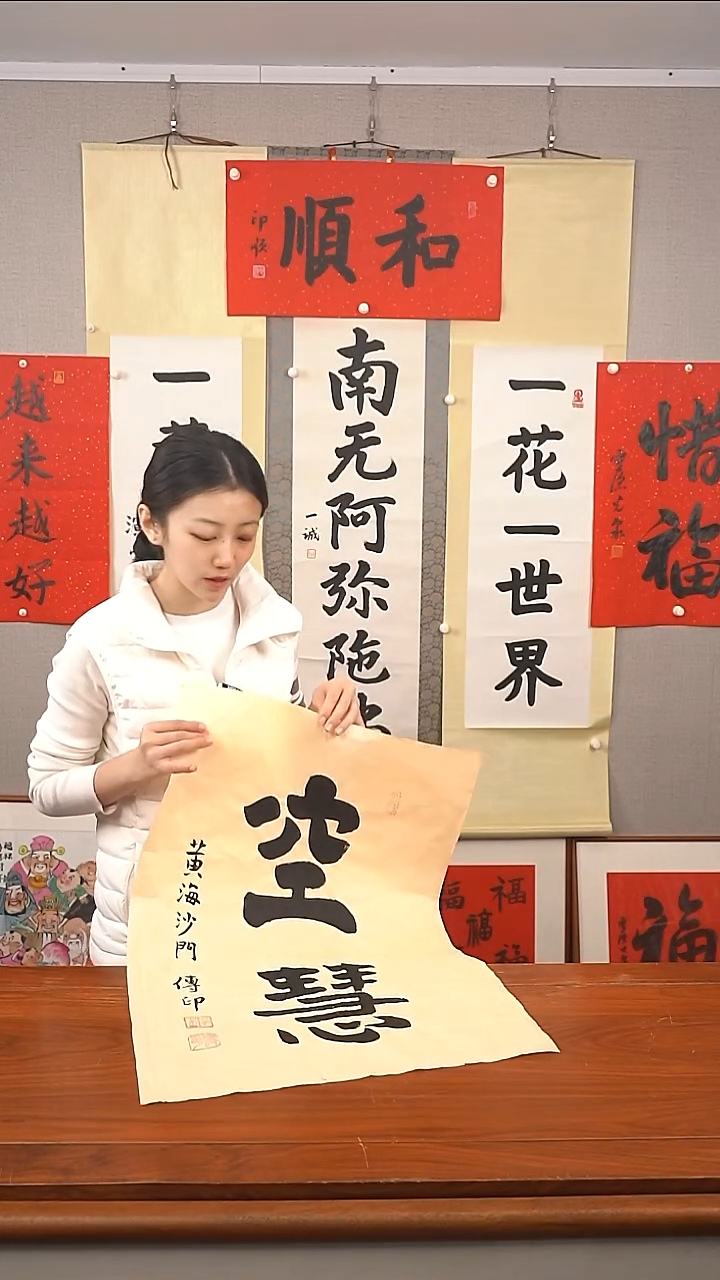 和順
印順
越来越好
一花
南无阿弥陀
一诚
一花一世界
惜福
空慧
黄海沙門 傳印
福
福
福
福
福